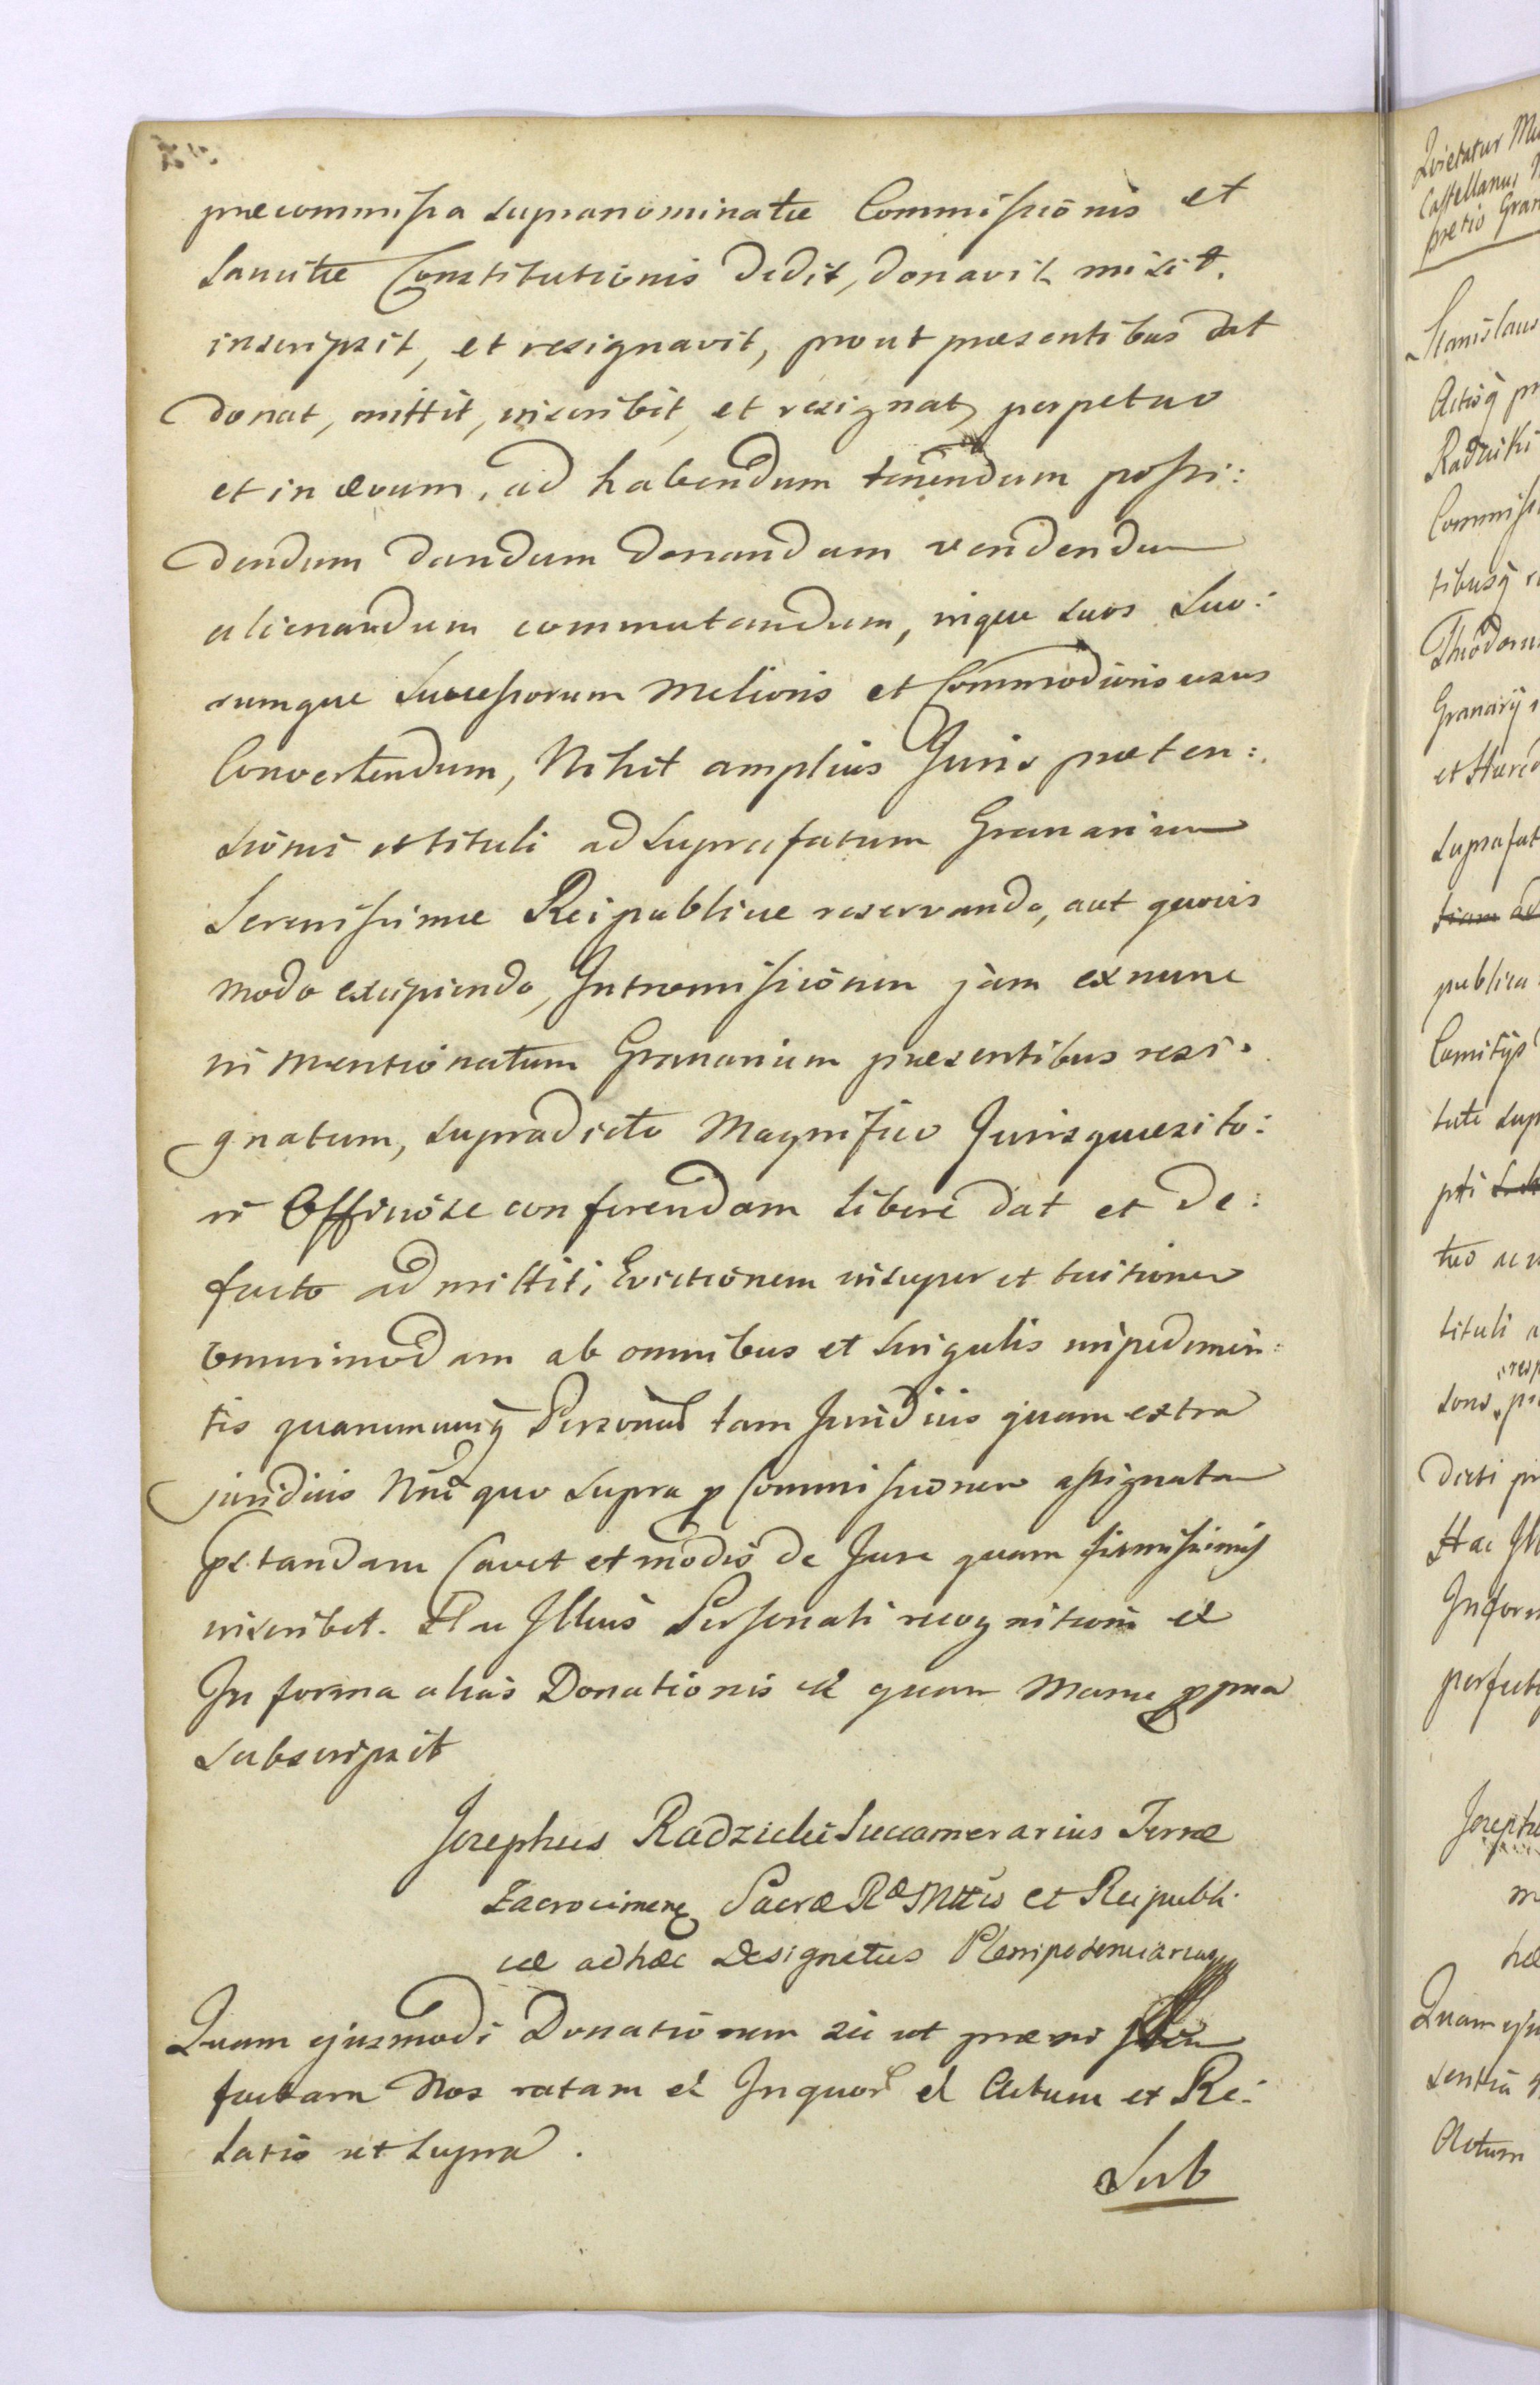 præcommissa supranominatæ Commissionis et
Sancitæ Constitutionis dedit, donavit misit.
inscripsit, et resignavit, prout præsentibus dat
donat, mittit, inscribit, et resignat, perpetuo
et in ævum, ad habendum tenendum possi:
dendum dandum donandum vendendum
alienandum commutandum, inque suos Suo:
rumque Successorum melioris et Commodioris usus
Convertendum, Nihil amplius Juris præten:
sionis et tituli ad Suprafatum Granarium
Serenissimæ Reipublicæ reservando, aut quovis
modo excipiendo, Intromissionem jam ex nunc
in mentionatum Granarium præsentibus resi:
gnatum, supradicto Magnifico Jurisquæsito:
ri Officiose conferendam libere dat et de:
facto admittit; Evictionem insuper et tuitionem
omnimodam ab omnibus et singulis impedimen:
tis quarumcunq Personarum tam Juridicis quam extra
juridicis Nne quo supra p Commissionem assignata
præstandam Cavet et modis de Jure quam firmissimis
inscribet. Hac Illius Personali recognitione et
In forma alias Donationis et quam Manu ppria
subscripsit
Josephus Radzicki Succamerarius Terræ
Zacrocimens Sacræ Ræ Mttis et Reipubli:
cæ ad hæc Designatus Plenipotentiarius
Quam ejusmodi Donationem sic ut præmissum
factam Nos ratam et Inquor et Actum et Re:
latio ut supra.
Sub
Quietatur
Castellanus
pretio
Stanislaus
Radzicki
Granarij
publica
Comitijs
tituli
dicti
Hac
Quam
Actum